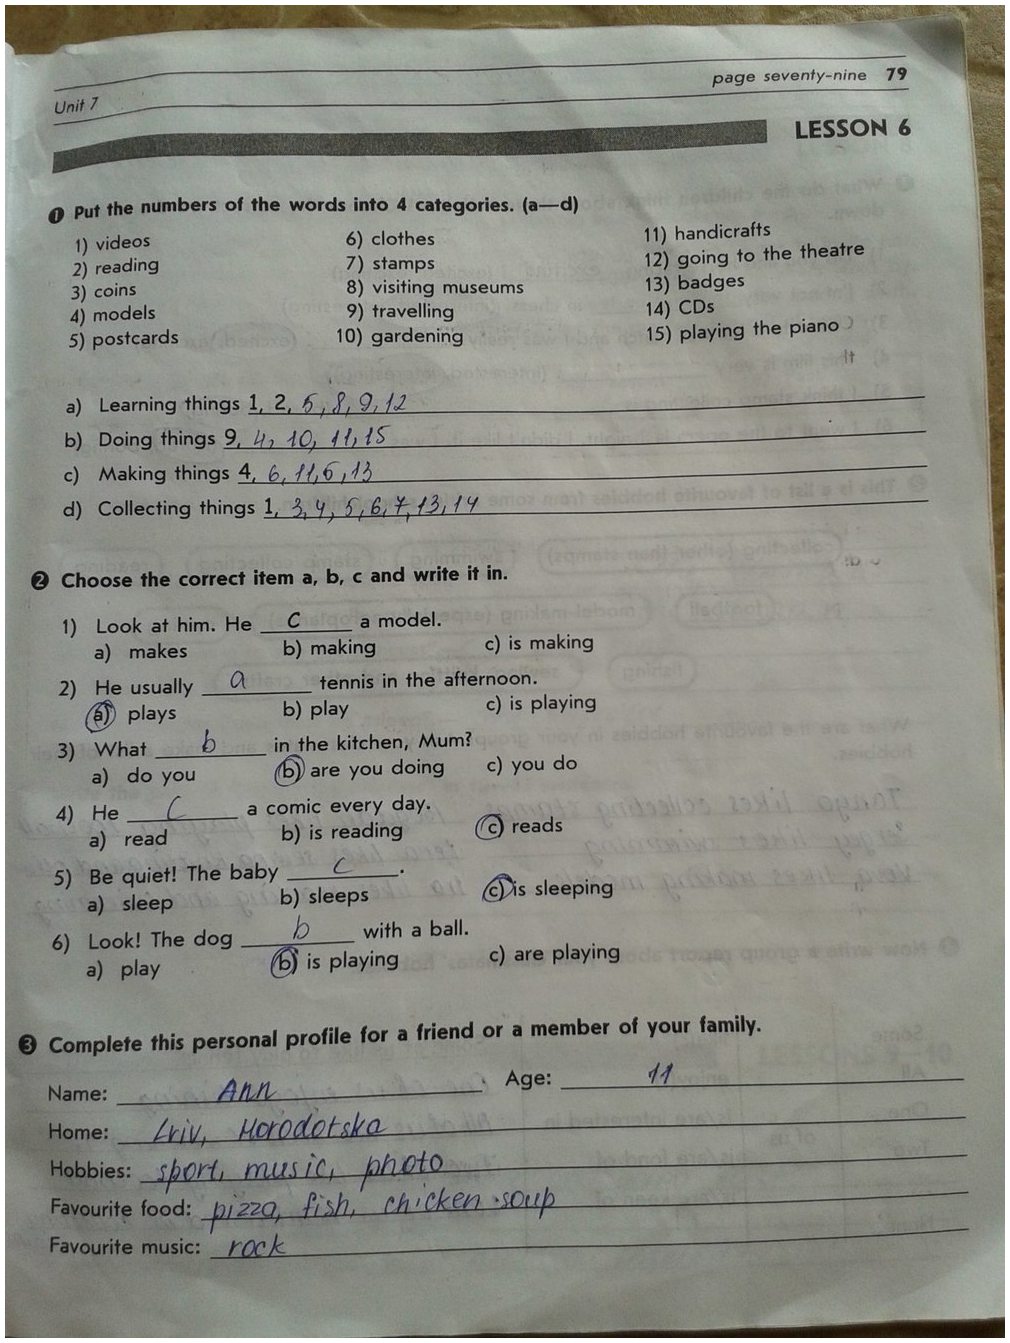 Unit 7
page seventy-nine 79
LESSON 6
1 Put the numbers of the words into 4 categories. (a—d)
1) videos 6) clothes 11) handicrafts
2) reading 7) stamps 12) going to the theatre
3) coins 8) visiting museums 13) badges
4) models 9) travelling 14) CDs
5) postcards 10) gardening 15) playing the piano
a) Learning things 1, 2, 5, 8, 9, 12
b) Doing things 9, 4, 10, 11, 15
c) Making things 4, 6, 11, 5, 13
d) Collecting things 1, 3, 4, 5, 6, 7, 13, 14
2 Choose the correct item a, b, c and write it in.
1) Look at him. He c a model.
a) makes b) making c) is making
2) He usually a tennis in the afternoon.
a) plays b) play c) is playing
3) What b in the kitchen, Mum?
a) do you b) are you doing c) you do
4) He c a comic every day.
a) read b) is reading c) reads
5) Be quiet! The baby c.
a) sleep b) sleeps c) is sleeping
6) Look! The dog b with a ball.
a) play b) is playing c) are playing
3 Complete this personal profile for a friend or a member of your family.
Name: Ann Age: 11
Home: Lviv, Horodotska
Hobbies: sport, music, photo
Favourite food: pizza, fish, chicken soup
Favourite music: rock